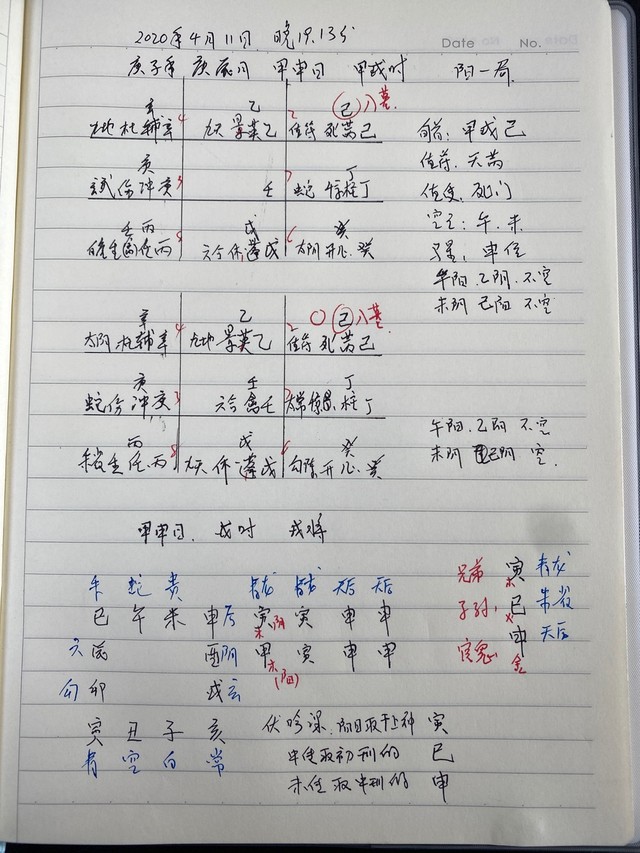 2020年4月11日 晚19.13分
Date No.
庚子年 庚辰月 甲申日 甲戌时 阳一局
辛 乙 2 己 八墓
九地 杜 辅 辛 4 九天 景 英乙 值符 死 芮己 旬首: 甲戌己
庚 丁 值符. 天芮
伤 冲 庚 3 壬 7 蛇 惊 柱丁 值使. 死门
空亡: 午.未
壬丙 戊 癸
生 任 丙 8 六合 休 蓬戊 6 太阴 开心.癸 马星: 申位
午阳.乙阴.不空
未阴 己阳 不空
辛 乙 2 〇 己 八墓
太阴 杜 辅辛 4 九地 景 英乙 值符 死 芮己
庚 壬 丁
蛇 伤 冲庚 3 六合 禽壬 7 太常 惊 柱丁
丙 戊 癸
朱雀 生 任.丙 8 九天 休 蓬戊 6 勾陈 开心.癸
午阳.乙阴 不空
未阴 己阴 空.
甲申日. 戌时 戌将
朱 蛇 贵 青龙 青龙 天后 天后
巳 午 未 申后 寅 寅 申 申
木 阴
六 辰 酉阴 甲 寅 申 申
木
(阳)
勾 卯 戌玄
寅 丑 子 亥
青 空 白 常
兄弟 寅 青龙
木
子孙. 巳 朱雀
火
官鬼 申 天后
金
伏吟课.阳日取干上神 寅
中传取初刑的 巳
末传取中刑的 申